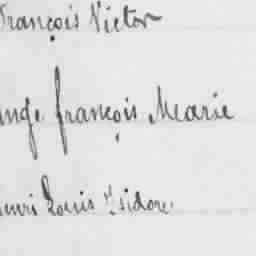 François Victor
Ange françois Marie
Henri Louis Isidore.